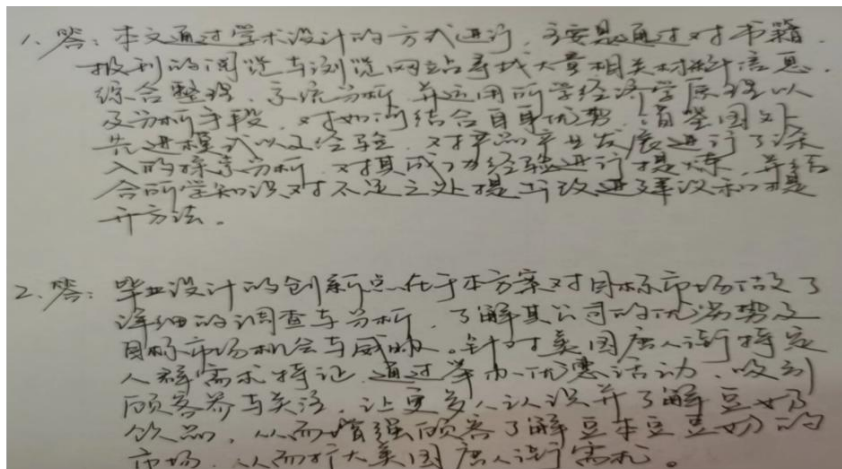 1、答：本文通过学术设计的方式进行，主要是通过对书籍、
报刊的阅览与浏览网站寻找大量相关材料信息，
综合整理，系统分析，并运用所学经济学原理以
及分析手段，对如何结合自身优势，借鉴国外
先进模式以及经验，对产品产业发展进行了深
入的探索分析，对其成功经验进行提炼，并结
合所学知识对不足之处提出改进建议和提
升方法。
2、答：毕业设计的创新点在于本方案对目标市场做了
详细的调查与分析，了解其公司的优劣势及
目标市场机会与威胁。针对美国唐人街特定
人群需求特征，通过举办优惠活动，吸引
顾客参与关注，让更多人认识并了解豆奶
饮品，从而增强顾客了解豆本豆豆奶的
市场，从而扩大美国唐人街需求。